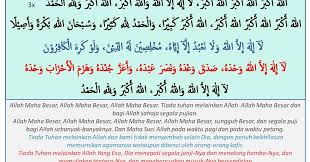 3x
اَللّٰهُ أَكْبَرُ، اَللّٰهُ أَكْبَرُ، لَا إِلٰهَ إِلاَّ اللهُ وَاللهُ أَكْبَرُ، اَللّٰهُ أَكْبَرُ وَلِلّٰهِ الْحَمْدُ
اَللّٰهُ أَكْبَرُ، اَللّٰهُ أَكْبَرُ، اَللّٰهُ أَكْبَرُ كَبِيْرًا، وَالْحَمْدُ لِلّٰهِ كَثِيْرًا، وَسُبْحَانَ اللهِ بُكْرَةً وَأَصِيْلًا
لَآ إِلٰهَ إِلاَّ اللهُ وَلَا نَعْبُدُ إِلاَّ إِيَّاهُ، مُخْلِصِيْنَ لَهُ الدِّيْنَ، وَلَوْ كَرِهَ الْكَافِرُوْنَ
لَآ إِلٰهَ إِلاَّ اللهُ وَحْدَهُ، صَدَقَ وَعْدَهُ، وَنَصَرَ عَبْدَهُ، وَأَعَزَّ جُنْدَهُ وَهَزَمَ الْأَحْزَابَ وَحْدَهُ
لَآ إِلٰهَ إِلاَّ اللهُ وَاللهُ أَكْبَرُ، اَللهُ أَكْبَرُ وَلِلّٰهِ الْحَمْدُ
Allah Maha Besar, Allah Maha Besar, Allah Maha Besar. Tiada tuhan melainkan Allah. Allah Maha Besar dan
bagi Allah sahaja segala pujian.
Allah Maha Besar, Allah Maha Besar, Allah Maha Besar, sungguh Maha Besar, dan segala puji
bagi Allah sebanyak-banyaknya. Dan Maha Suci Allah pada waktu pagi dan pada waktu petang.
Tiada Tuhan melainkan Allah dan kami tidak menyembah selain Dia, dengan penuh keikhlasan
memurnikan agamanya walaupun dibenci oleh orang-orang kafir.
Tiada Tuhan melainkan Allah Yang Esa, Dia menepati segala janji-Nya dan menolong hamba-Nya, dan